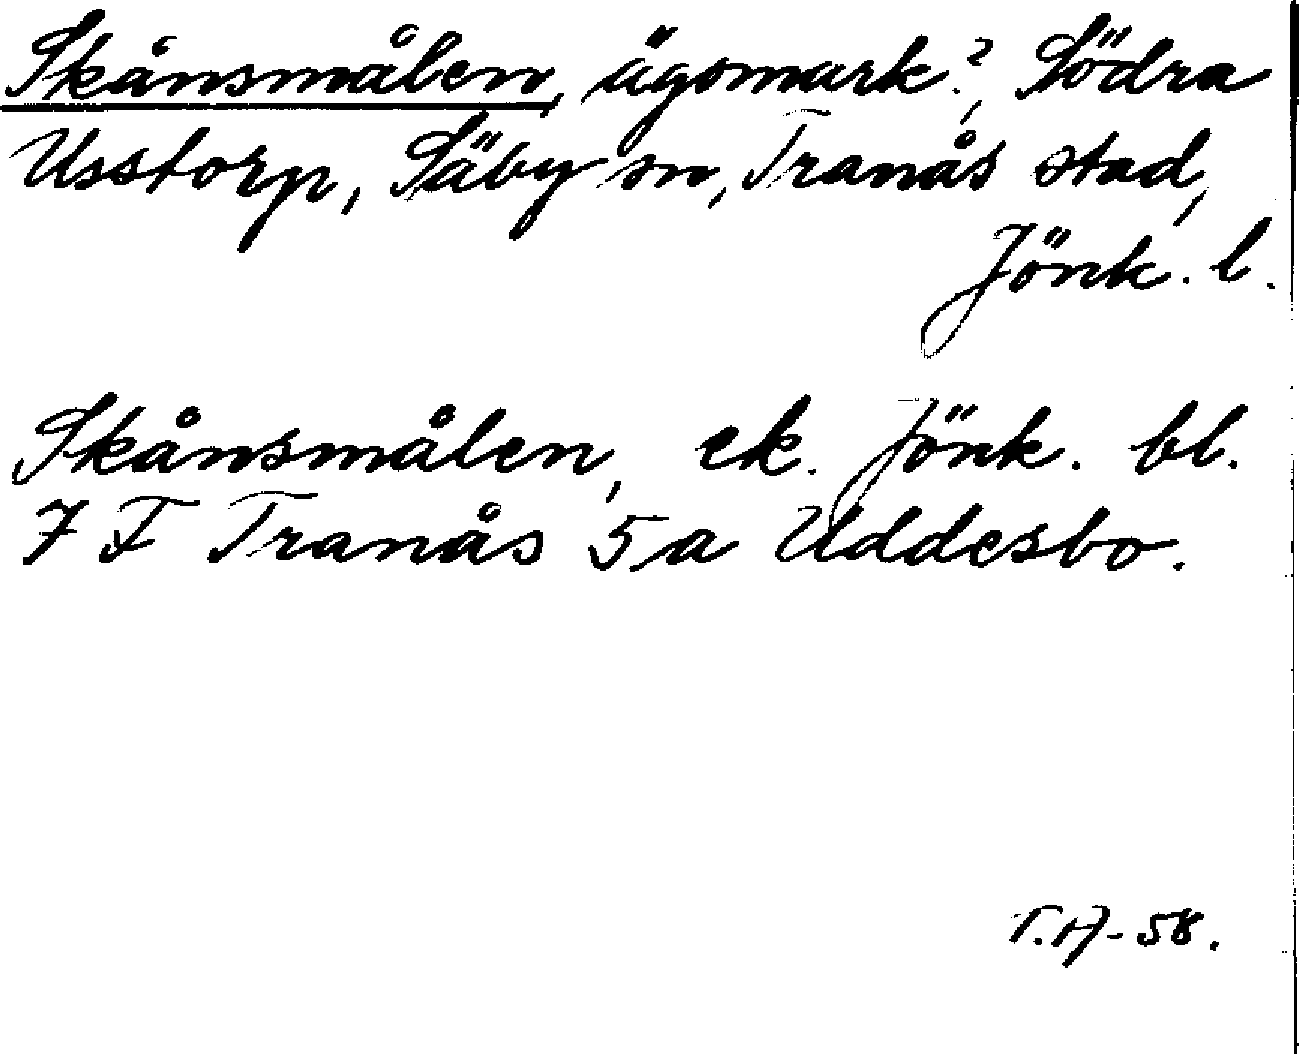 Skånsmålen, ägomark?, Södra
Usstorp, Säby sn, Tranås stad,
Jönk. l.
Skånsmålen, ek. Jönk. bl.
7 F Tranås 5 a Uddesbo.
T.A-58.